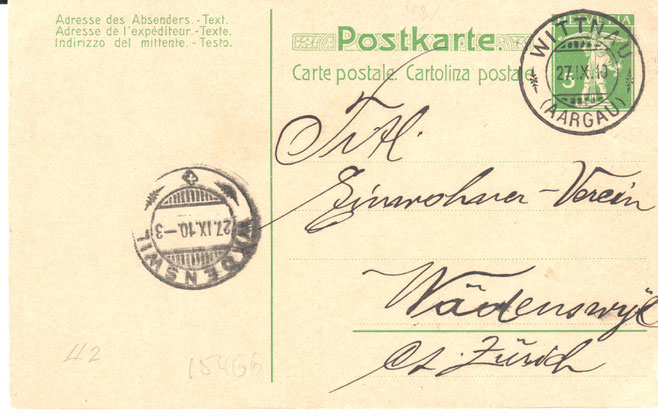 Adresse des Absenders. - Text.
Adresse de l'expéditeur. - Texte.
Indirizzo del mittente. - Testo.
Postkarte.
Carte postale. Cartolina postale.
HELVETIA
WITTNAU
27.IX.10
(AARGAU)
Titl.
Einwohner-Verein
Wädenswyl
Ct. Zürich
WÄDENSWIL
27.IX.10.-3
42
15466